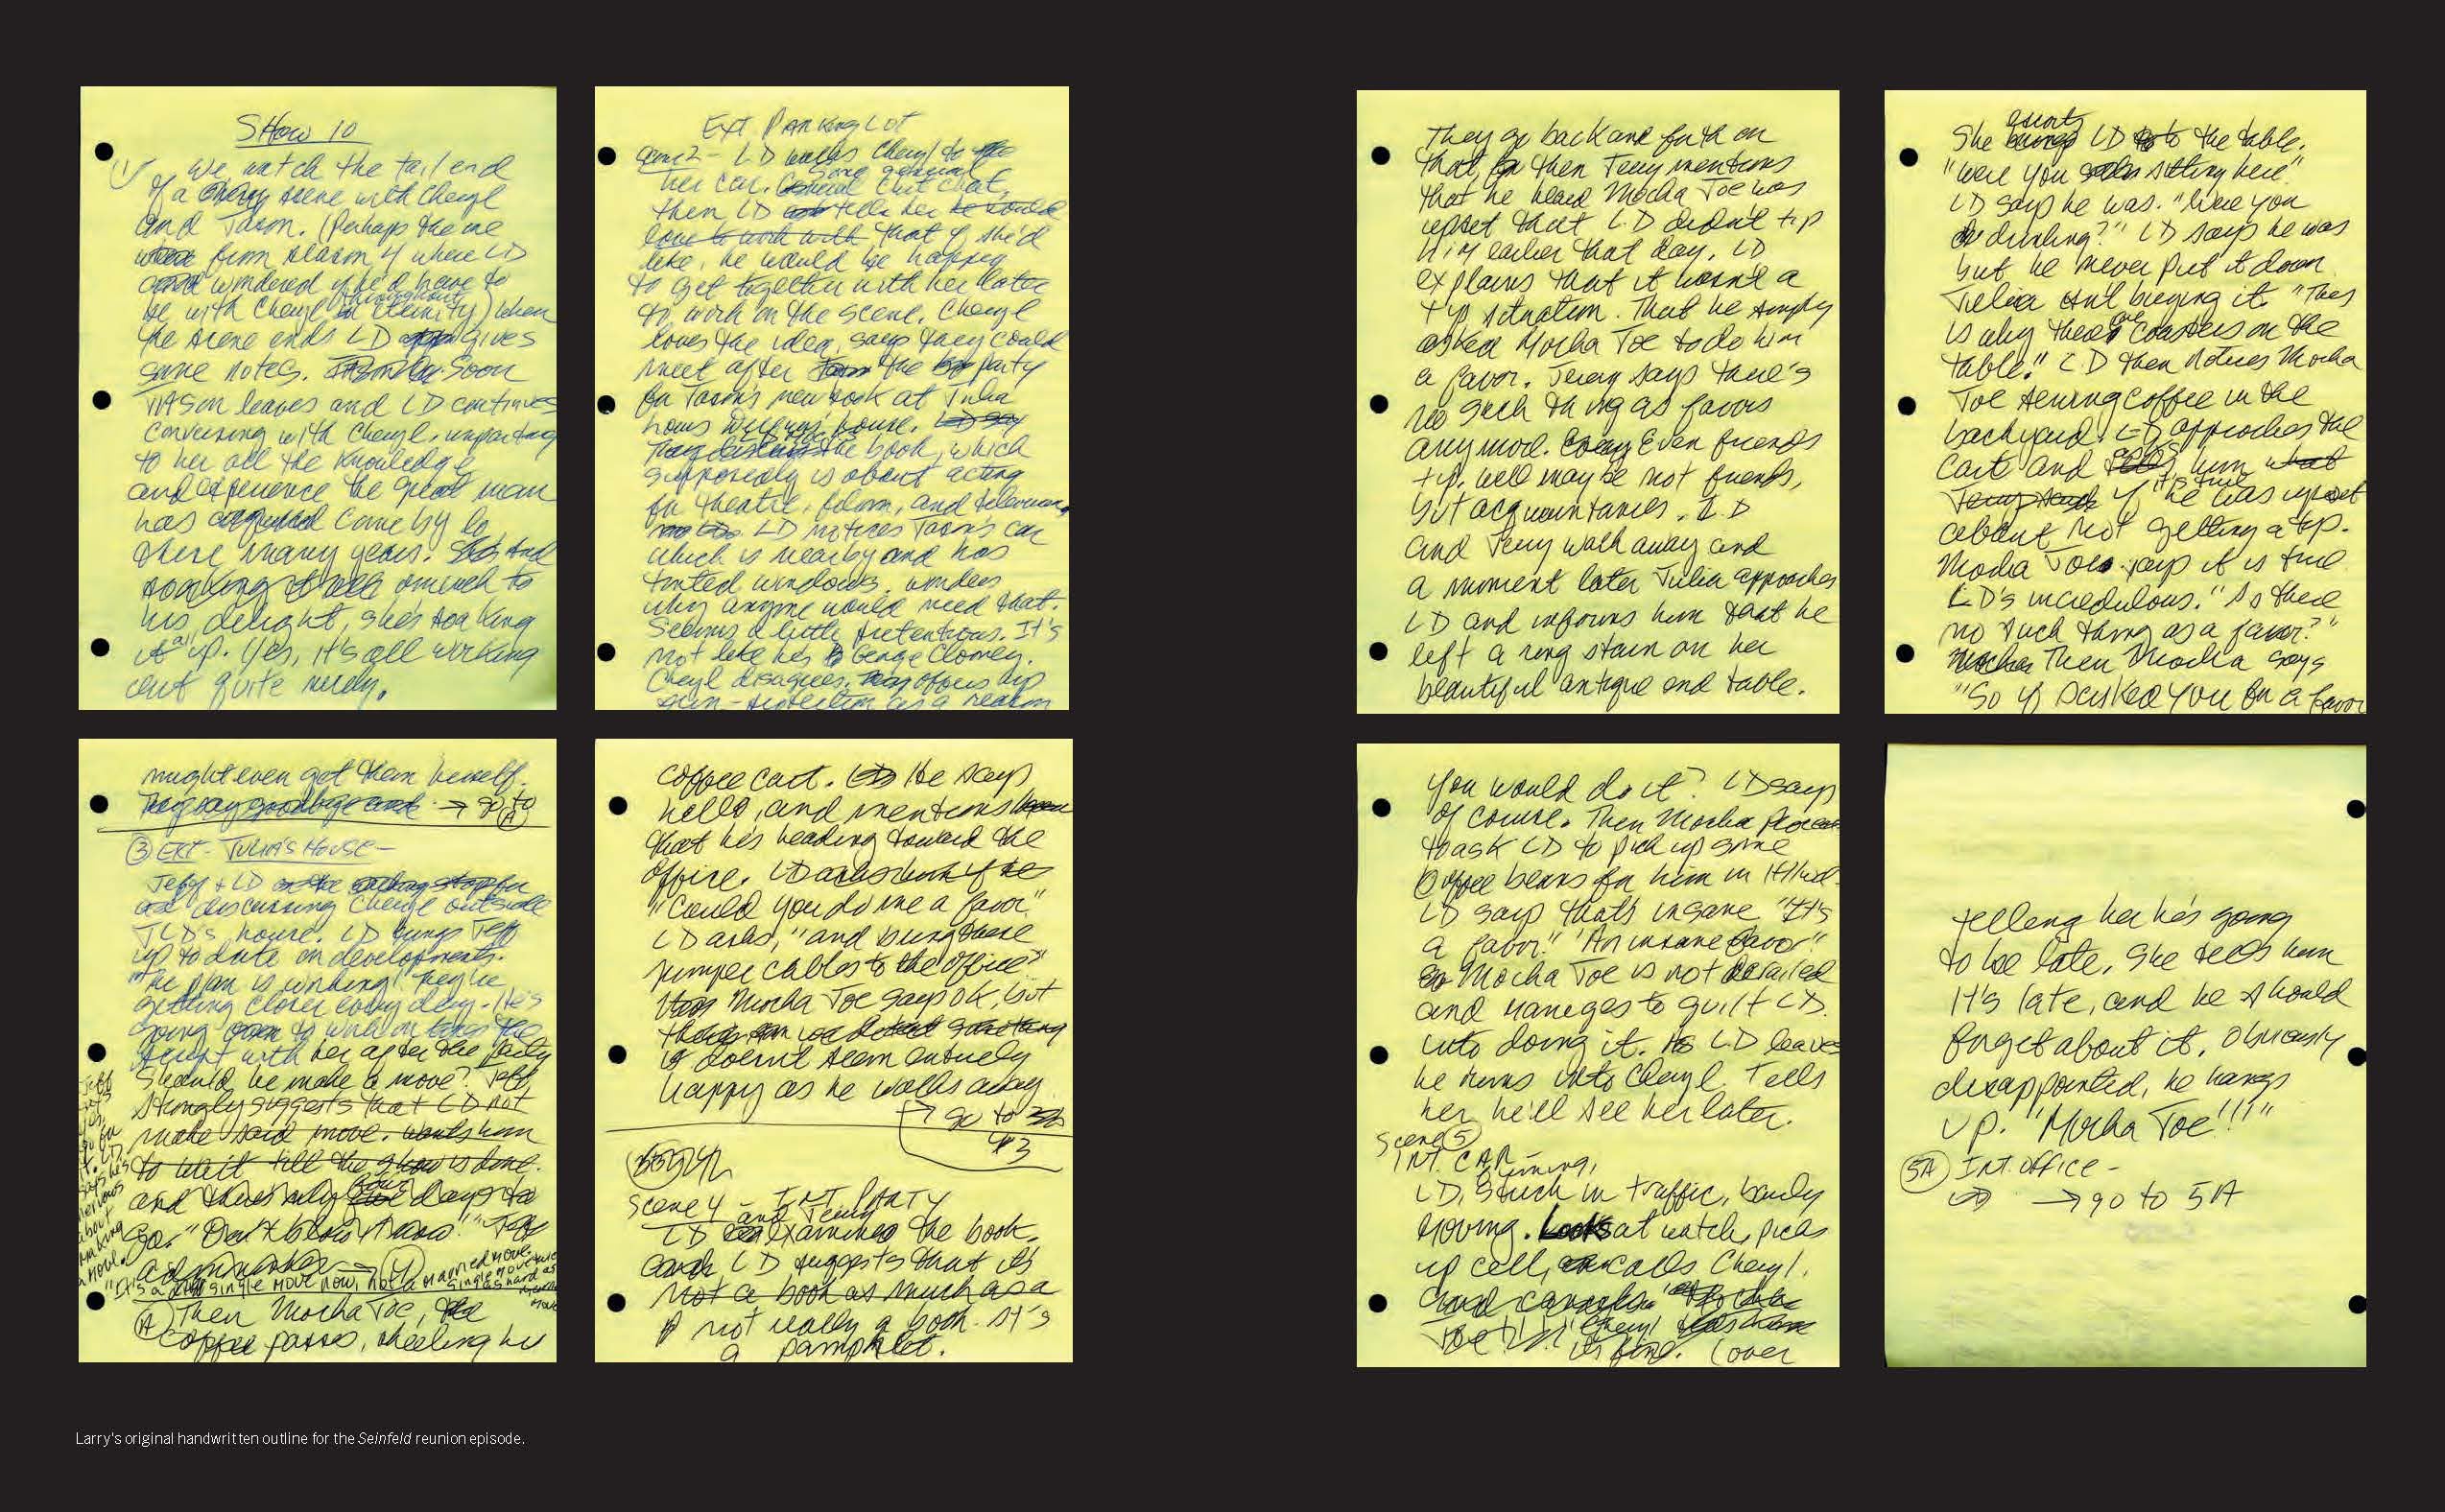 SHow 10
① We watch the tail end
of a scene with Cheryl
and Jason. (Perhaps the one
from season 4 where LD
wondered if he'd have to
be with Cheryl throughout eternity) when
the scene ends LD gives
some notes. Soon
JASon leaves and LD continues
conversing with Cheryl, imparting
to her all the knowledge
and experience the great man
has come by lo
these many years. And
much to
his delight, she's soaking
it all up. Yes, it's all working
out quite nicely.
EXT. PARKing LOT
Scene 2 - LD walks Cheryl to
her car. Some general chit chat,
then LD tells her he would
love to work with that if she'd
like, he would be happy
to get together with her later
to work on the scene. Cheryl
loves the idea, says they could
meet after the party
for Jason's new book at Julia
Louis Dreyfus' house.
the book, which
supposedly is about acting
for theatre, film, and television.
LD notices Jason's car
which is nearby and has
tinted windows, wonders
why anyone would need that.
Seems a little pretentious. It's
not like he's George Clooney.
Cheryl disagrees, offers up
sun-protection as a reason
might even get them herself.
They say goodbye and → go to Ⓐ
③ EXT - JULIA'S HOUSE -
Jeff + LD
discussing Cheryl outside
JLD's house. LD brings Jeff
up to date on developments.
"The plan is working! They're
getting closer every day. He's
going to work on the
script with her after the party
Should he make a move? Jeff
strongly suggests that LD not
make said move. wants him
to wait till the show is done.
and there's only four days to
go. "Don't blow it now!" Jeff
Jeff
says
yes,
go for
it. LD
says he's
nervous
about
making
a move.
"It's a single move now, not a married move.
Ⓐ Then Mocha Joe, the
coffee passes, wheeling his
coffee cart. He says
hello, and mentions
that he's heading toward the
office.
"Could you do me a favor"
LD asks, "and bring these
jumper cables to the office?"
Mocha Joe says ok, but
doesn't seem entirely
happy as he walks away
→ go to
#3
Scene 4 - INT. PARTY
LD and Jerry examines the book.
LD suggests that it's
not a book as much as a
not really a book. It's
a pamphlet.
They go back and forth on
that, then Jerry mentions
that he heard Mocha Joe was
upset that LD didn't tip
him earlier that day. LD
explains that it wasn't a
tip situation. That he simply
asked Mocha Joe to do him
a favor. Jerry says there's
no such thing as favors
anymore. Even friends
tip. well maybe not friends,
but acquaintances. LD
and Jerry walk away and
a moment later Julia approaches
LD and informs him that he
left a ring stain on her
beautiful antique end table.
She escorts LD to the table.
"Were you sitting here"
LD says he was. "Were you
drinking?" LD says he was
but he never put it down.
Julia isn't buying it. "This
is why there are coasters on the
table." LD then notices Mocha
Joe serving coffee in the
backyard. LD approaches the
cart and asks him what
if it's true he was upset
about not getting a tip.
Mocha Joe says it is true
LD's incredulous. "So there
no such thing as a favor?"
Then Mocha says
"So if I asked you for a favor
you would do it? LD says
of course. Then Mocha proceeds
to ask LD to pick up some
coffee beans for him in
LD says that's insane "It's
a favor." "An insane favor"
Mocha Joe is not derailed
and manages to guilt LD
into doing it. As LD leaves
he runs into Cheryl. Tells
her he'll see her later.
Scene ⑤
INT. CAR -
LD, fuming, stuck in traffic, barely
moving. Looks at watch, picks
up cell, calls Cheryl.
it's fine. (over
telling her he's going
to be late, she tells him
it's late, and he should
forget about it. Obviously
disappointed, he hangs
up. "Mocha Joe!!!"
5A INT. OFFICE -
→ go to 5A
Larry's original handwritten outline for the Seinfeld reunion episode.